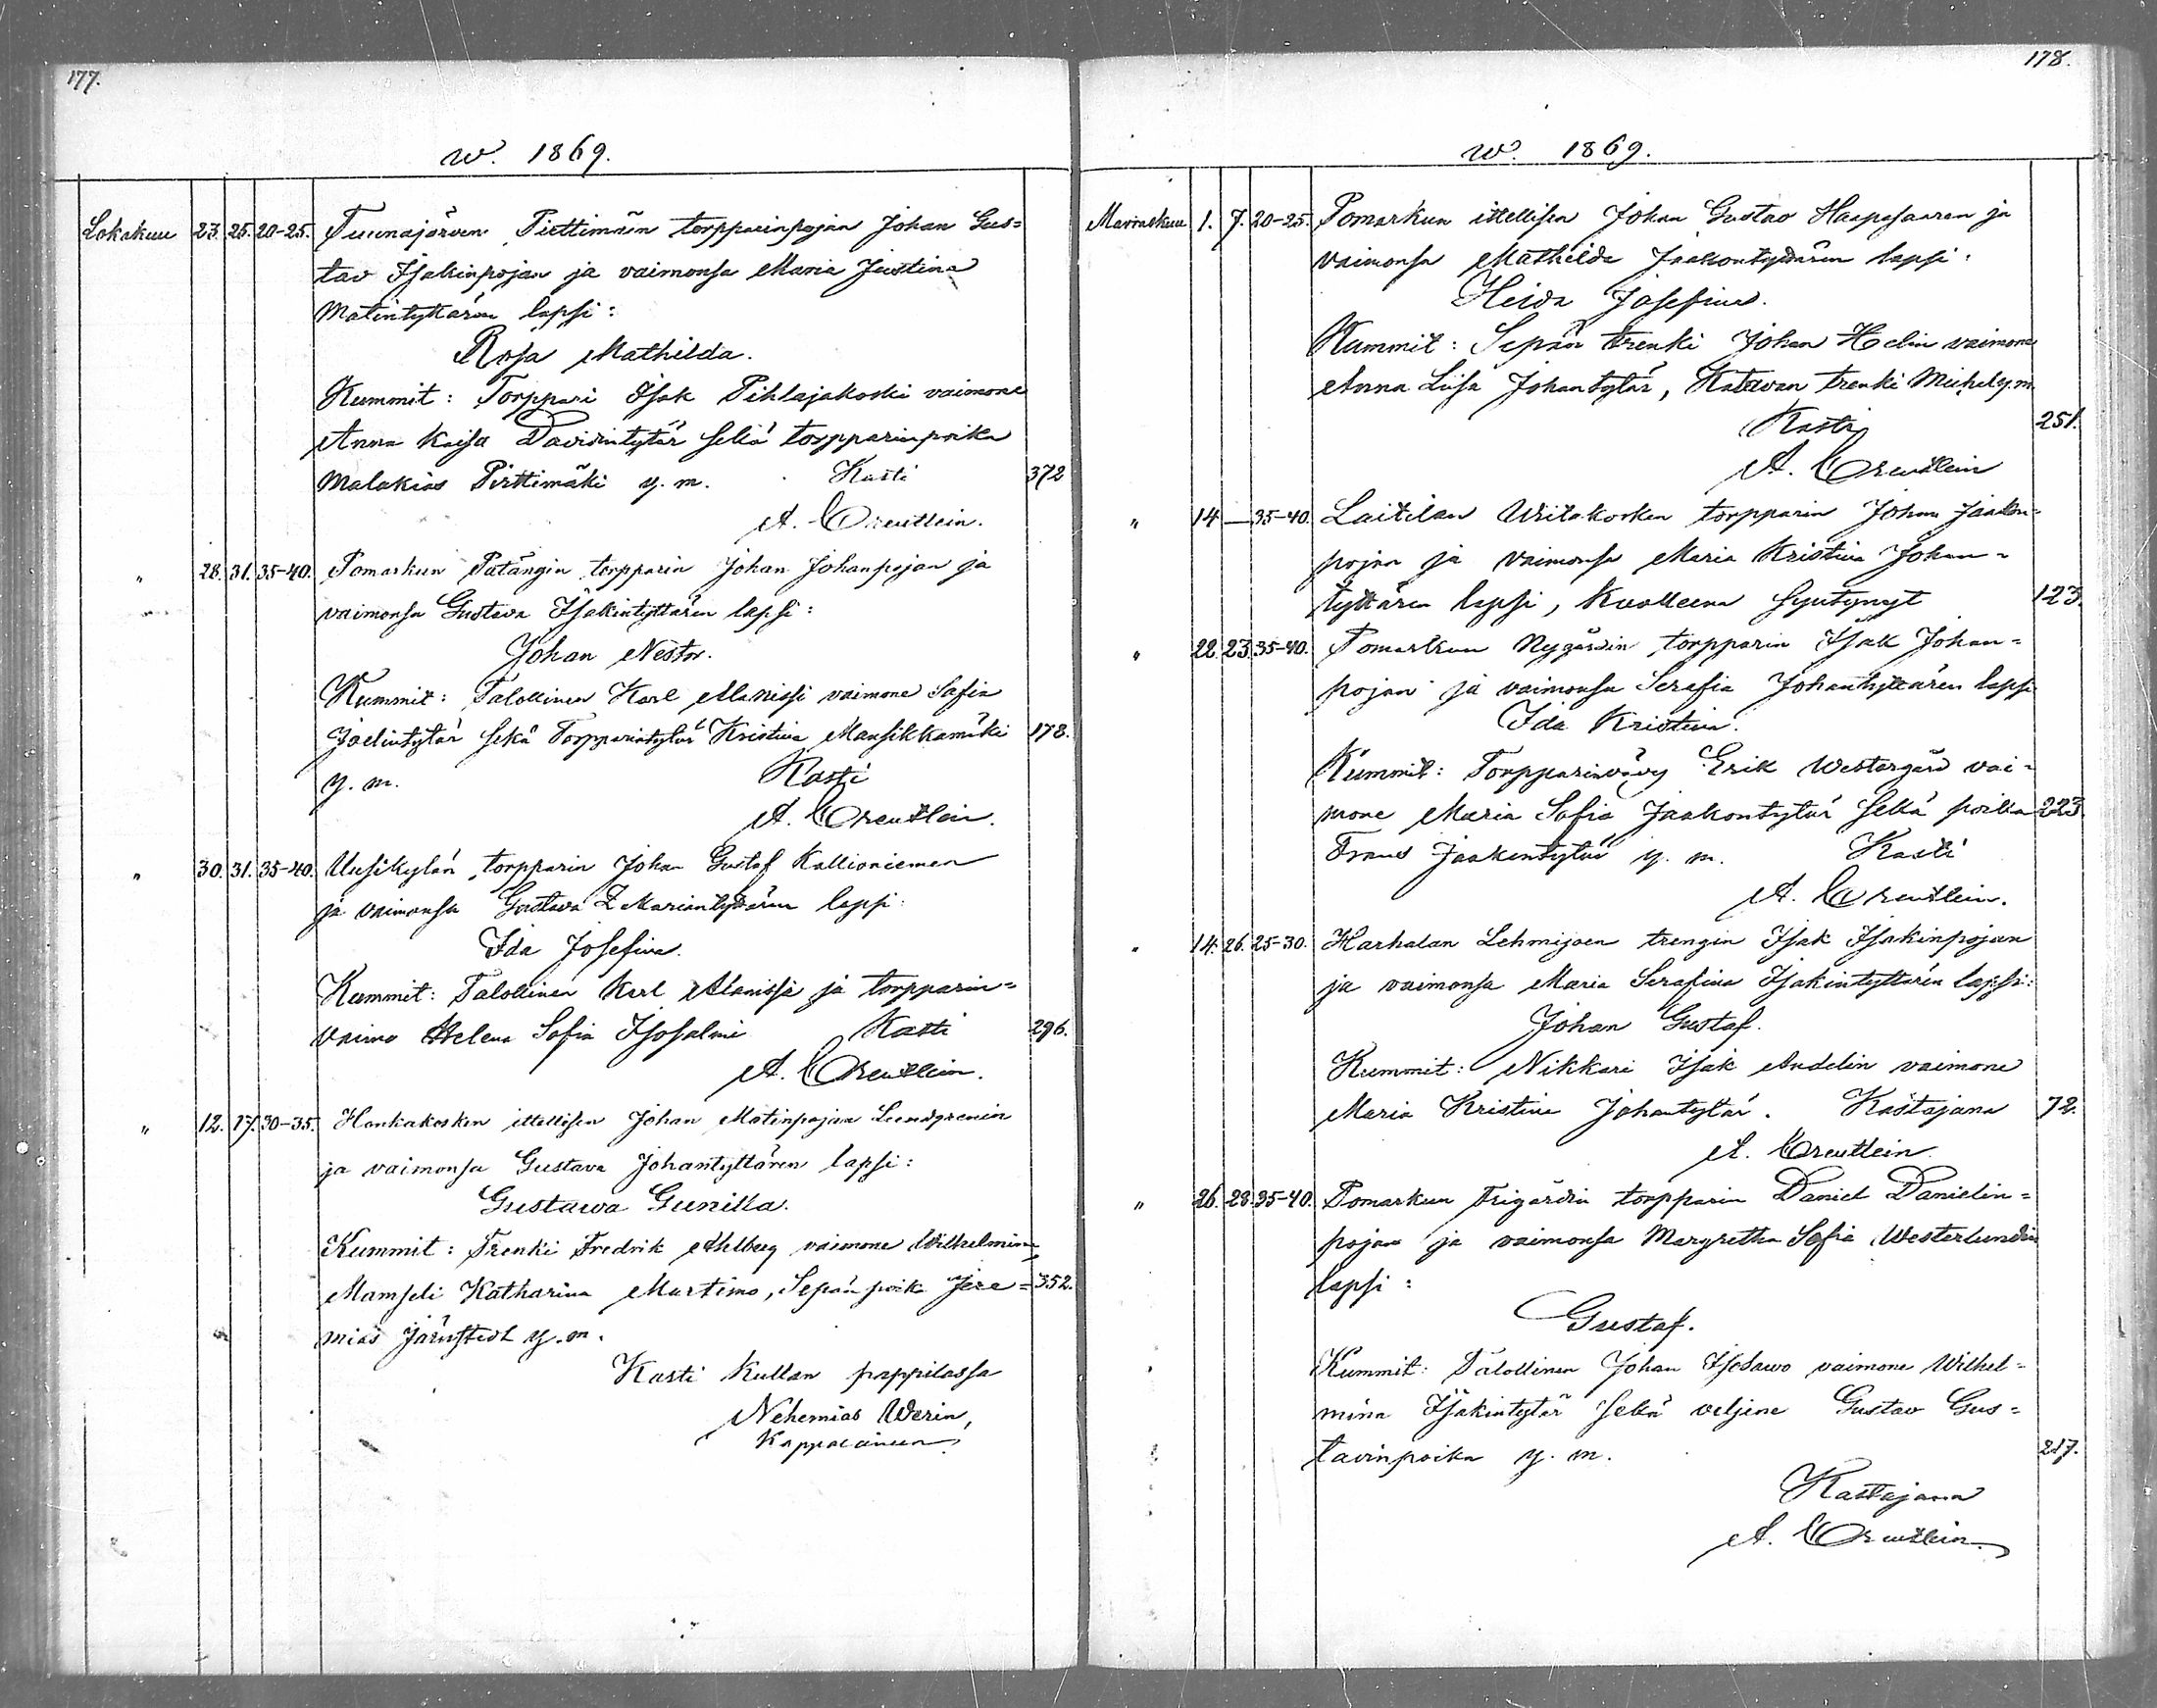 177.
w. 1869.
Lokakuu 23. 25. 20-25. Tuunajärven Pirttimäen torpparinpojan Johan Gus=
tav Isakinpojan ja vaimonsa Maria Justina
Matintyttären lapsi:
Rosa Mathilda.
Kummit: Torppari Isak Pihlajakoski vaimone
Anna Kaisa Davidintytär sekä torpparinpoika
Malakias Pirttimäki y. m. Kasti 372
A. Creutlein.
" 28. 31. 35-40. Pomarkun Patängin torpparin Johan Johanpojan ja
vaimonsa Gustava Isakintyttären lapsi:
Johan Nestor.
Kummit: Talollinen Karl Alanissi vaimone Sofia
Joelintytär sekä Torpparintytär Kristina Mansikkamäki 178.
y. m. Kasti
A. Creutlein.
" 30. 31. 35-40. Uusikylän torpparin Johan Gustaf Kallioniemen
ja vaimonsa Gustava Mariantyttären lapsi:
Ida Josefina.
Kummit: Talollinen Karl Alanissi ja torpparin=
vaimo Helena Sofia Isosalmi Kasti 296.
A. Creutlein.
" 12. 17. 30-35. Honkakosken itellisen Johan Matinpojan Lundgrenin
ja vaimonsa Gustava Johantyttären lapsi:
Gustawa Gunilla.
Kummit: Trenki Fredrik Ahlberg vaimone Wilhelmina
Mamseli Katharina Martimo, Sepän poika Jere= 352.
mias Järnstedt y. m.
Kasti Kullan pappilassa
Nehemias Werin,
Kappalainen
178.
w. 1869.
Marraskuu 1. 7. 20-25. Pomarkun itellisen Johan Gustav Haapasaaren ja
vaimonsa Mathilda Jaakontyttären lapsi:
Heida Josefina.
Kummit: Sepän trenki Johan Helin vaimone
Anna Liisa Johantytär, Katavan trenki Michel y. m.
Kasti 251.
A. Creutlein
" 14 — 35-40. Laitilan Wiitakosken torpparin Johan Jaakon=
pojan ja vaimonsa Maria Kristina Johan=
tyttären lapsi, kuolleena syntynyt 123.
" 22. 23. 35-40. Pomarkun Nygårdin torpparin Isak Johan=
pojan ja vaimonsa Serafia Johantyttären lapsi
Ida Kristina.
Kummit: Torpparinvävy Erik Westergård vai=
mone Maria Sofia Jaakontytär sekä poika 223
Frans Jaakontytär y. m. Kasti
A. Creutlein.
" 14. 26. 25-30. Harhalan Lehmijoen trengin Isak Isakinpojan
ja vaimonsa Maria Serafina Isakintyttären lapsi:
Johan Gustaf.
Kummit: Nikkari Isak Andelin vaimone
Maria Kristina Johantytär. Kastajana 72.
A. Creutlein.
" 26. 28. 35-40. Pomarkun Frigårdin torpparin Daniel Danielin=
pojan ja vaimonsa Margretha Sofia Westerlundin
lapsi:
Gustaf.
Kummit: Talollinen Johan Isosawo vaimone Wilhel=
mina Isakintytär sekä veljene Gustav Gus=
tavinpoika y. m. 217.
Kastajana
A. Creutlein.